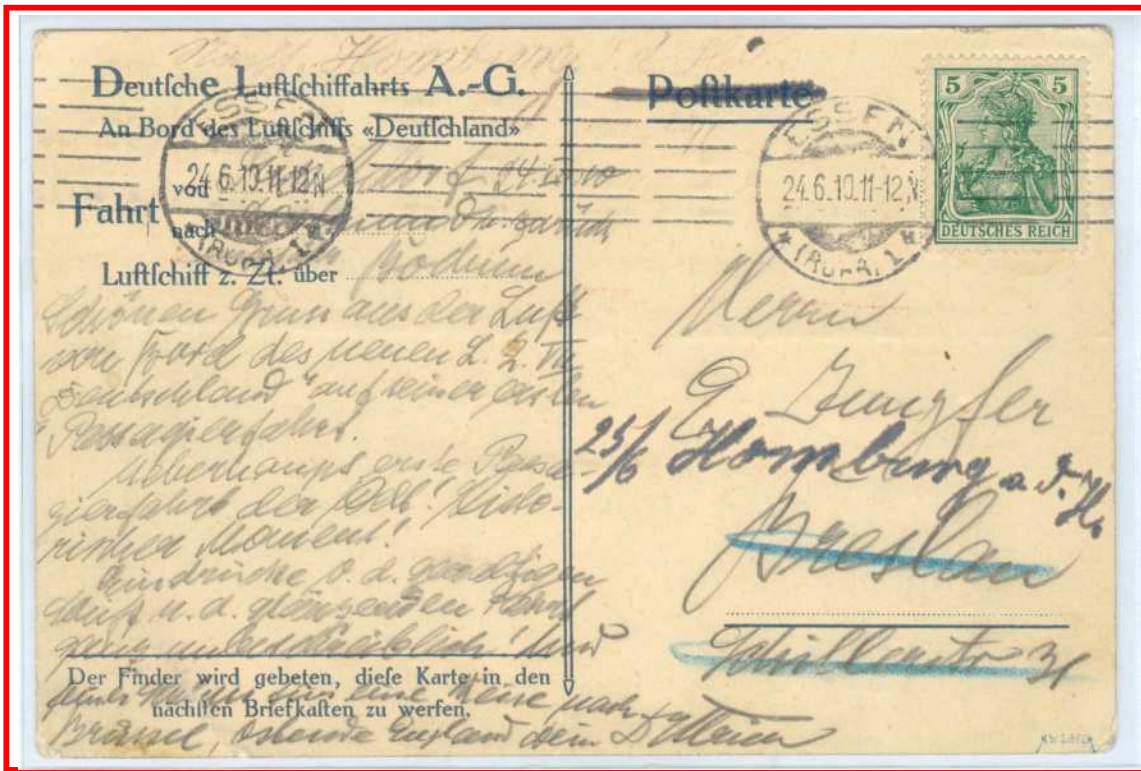 Deutſche Luftſchiffahrts A.-G.
An Bord des Luftſchiffs «Deutſchland»
Fahrt von 24.6.10
nach
Luftſchiff z. Zt. über Bochum
Schönen Gruss aus der Luft
von Bord des neuen L. Z. VII
"Deutschland" auf seiner ersten
Passagierfahrt.
Ueberhaupt erste Passa-
gierfahrt der Welt! Histo-
rischer Moment!
Eindrücke v. d.
u. d. glänzenden Fahrt
ganz unbeschreiblich! Und
Der Finder wird gebeten, dieſe Karte in den
nächſten Briefkaſten zu werfen.
eine Reise nach
Brüssel, Ostende England dein
Poſtkarte
ESSEN
24.6.10.11-12N
*(RUHR) 1*
ESSEN
24.6.10.11-12N
*(RUHR) 1*
5 5
DEUTSCHES REICH
Herrn
G Jungfer
25/6 Homburg a. d. H.
Breslau
Schillerstr 31